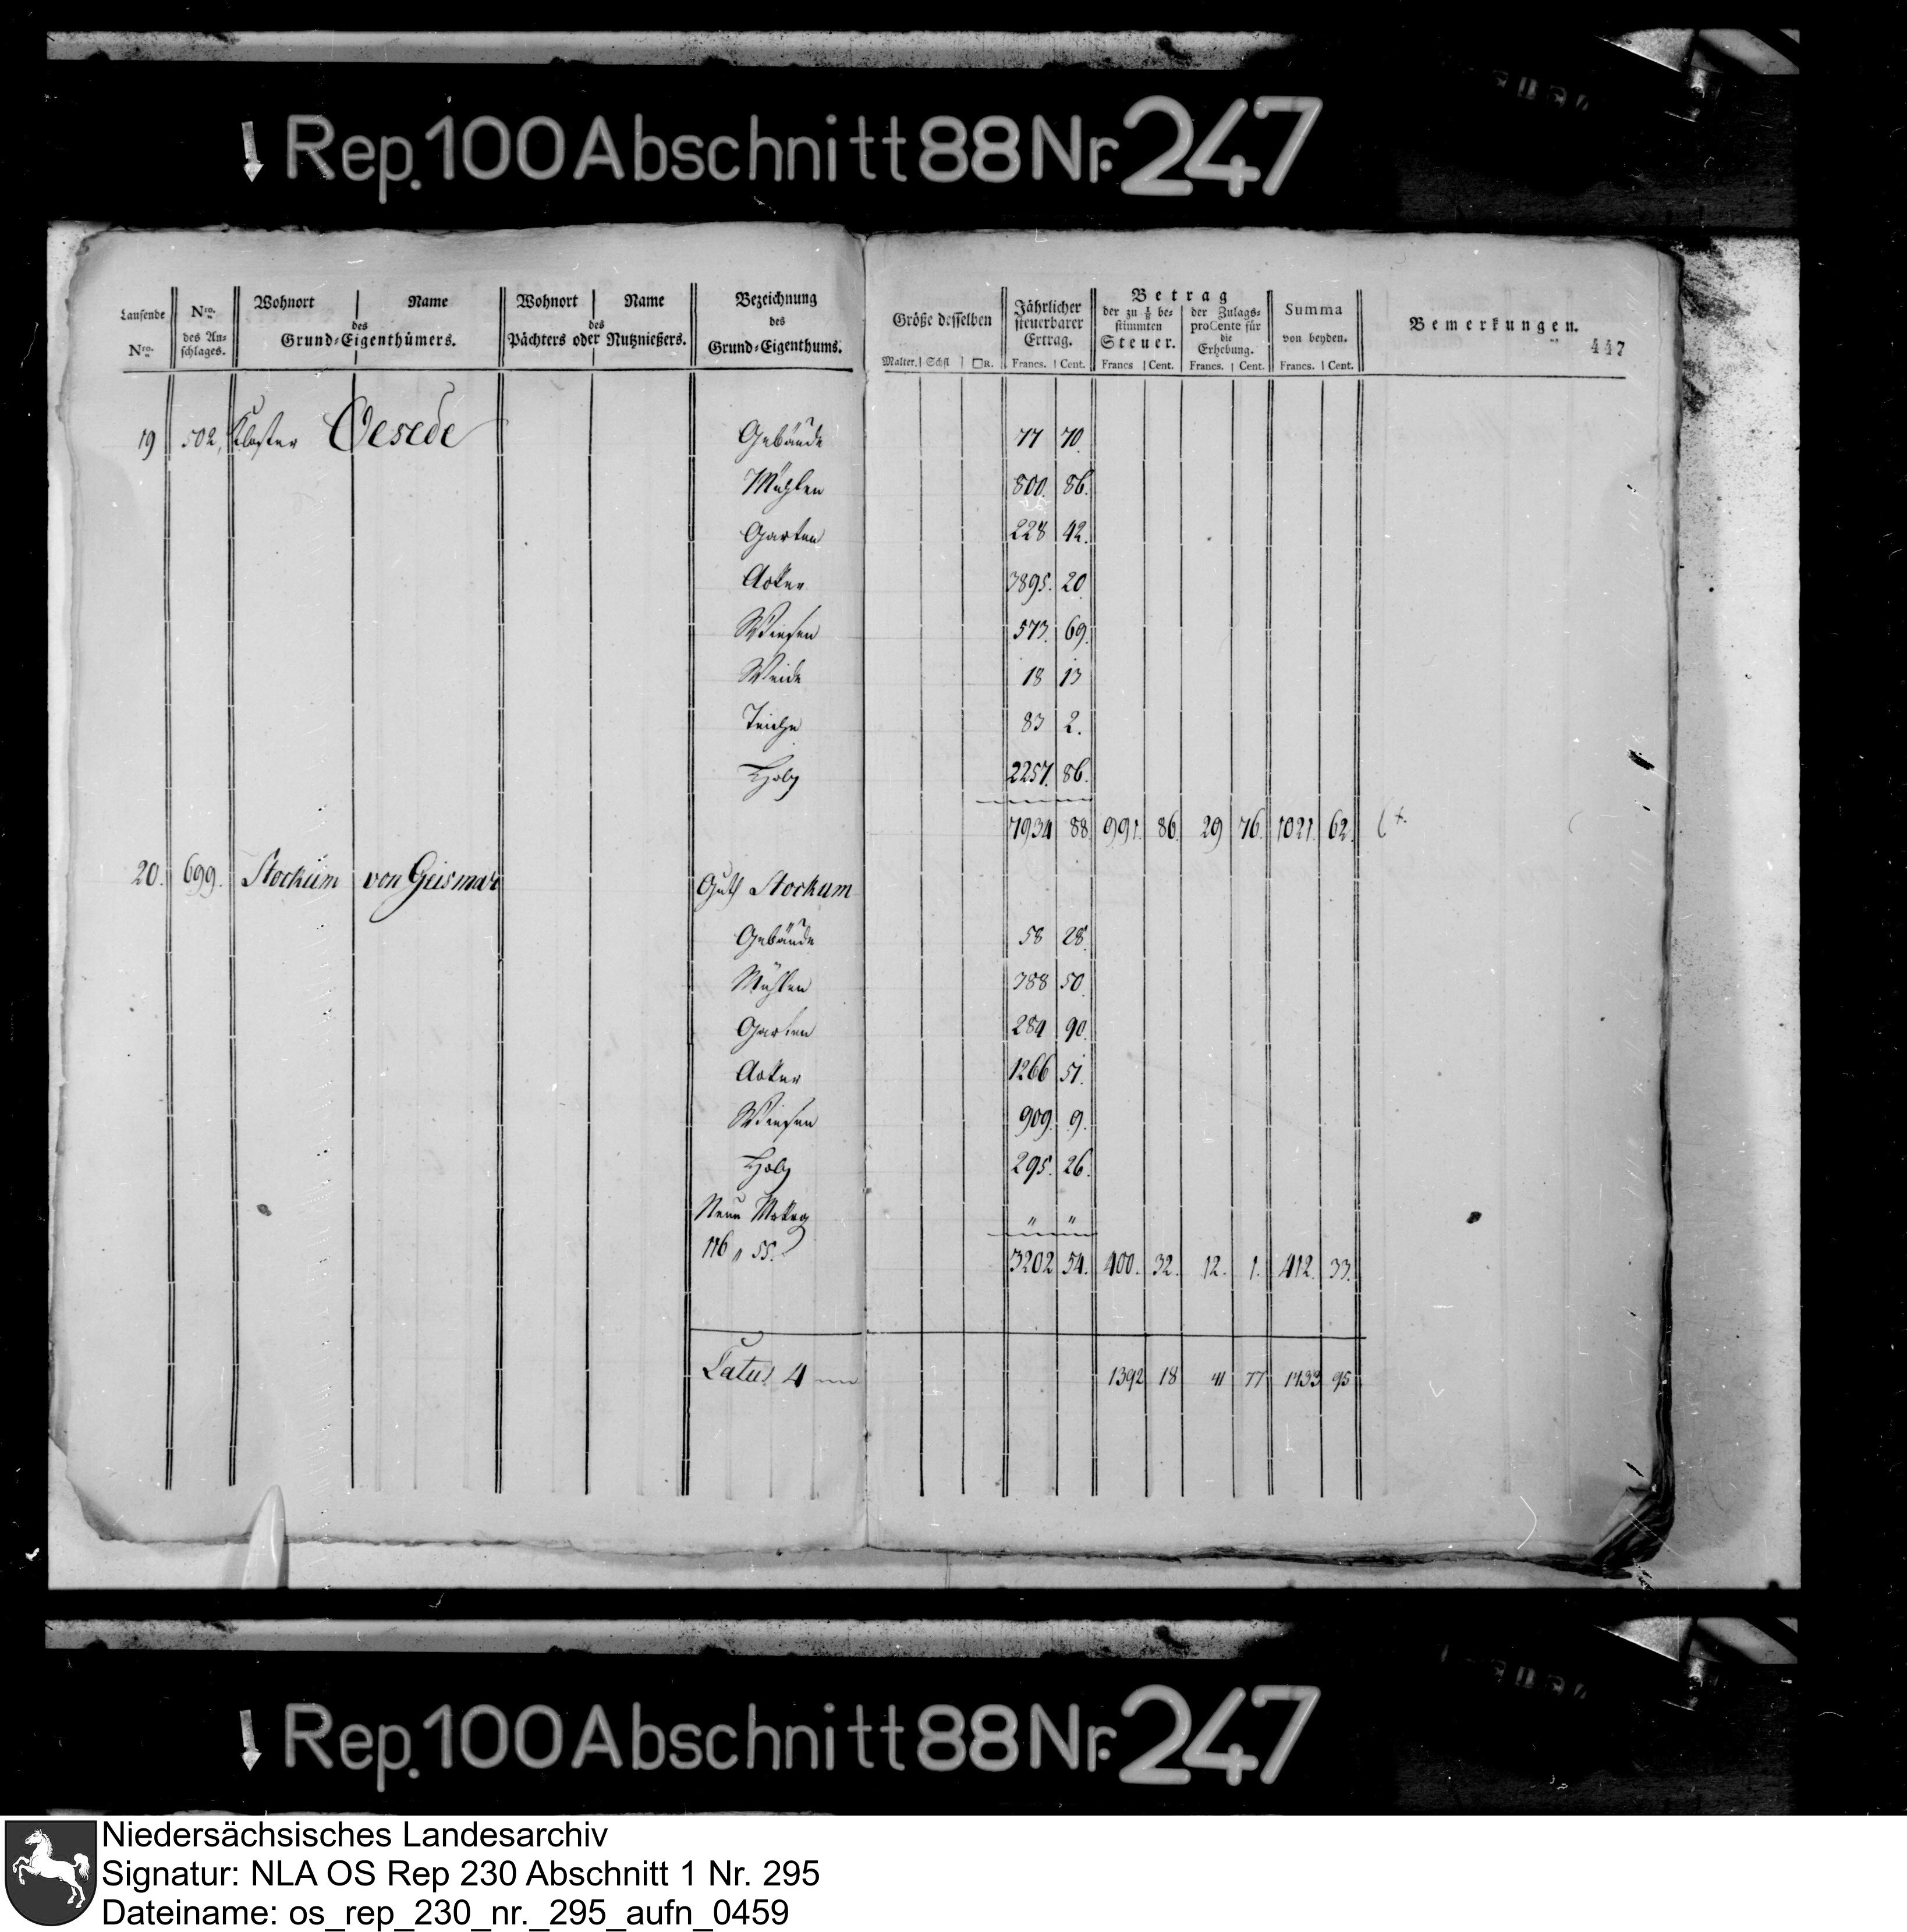 Rep. 100 Abschnitt 88 Nr. 247
Laufende Nro.
Nro. des An-schlages.
Wohnort | Name
des
Grund-Eigenthümers.
Wohnort | Name
des
Pächters oder Nutznießers.
Bezeichnung
des
Grund-Eigenthums.
Größe desselben
Malter. | Schfl | □R.
Jährlicher
steuerbarer
Ertrag.
Francs. | Cent.
Betrag
der zu ⅛ be-
stimmten
Steuer.
Francs | Cent.
der Zulags-
proCente für
die
Erhebung.
Francs. | Cent.
Summa
von beyden.
Francs. | Cent.
Bemerkungen.
447
19 502, Kloster Oesede Gebäude 77 70.
Mühlen 800. 86.
Garten 228 42.
Acker 3895. 20.
Wiesen 573. 69.
Weide 18 13
Teiche 83 2.
Holz 2257. 86.
7934 88 991. 86. 29 76. 1021. 62.
20. 699. Stockum von Geismar Guth Stockum
Gebäude 58 28.
Mühlen 388 50.
Garten 284 90.
Acker 1266 51.
Wiesen 909. 9.
Holz 295. 26.
Neue " "
116 " 55.
3202 54. 400. 32. 12. 1. 412. 33.
Latus 4 1392 18 41 77 1433 95
Rep. 100 Abschnitt 88 Nr. 247
Niedersächsisches Landesarchiv
Signatur: NLA OS Rep 230 Abschnitt 1 Nr. 295
Dateiname: os_rep_230_nr._295_aufn_0459